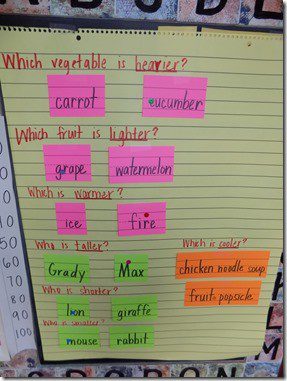 Which vegetable is heavier?
carrot cucumber
Which fruit is lighter?
grape watermelon
Which is warmer?
ice fire
Who is taller? Which is cooler?
Grady Max chicken noodle soup
Who is shorter? fruit popsicle
lion giraffe
Who is smaller?
mouse rabbit
50
60
70
80
90
100